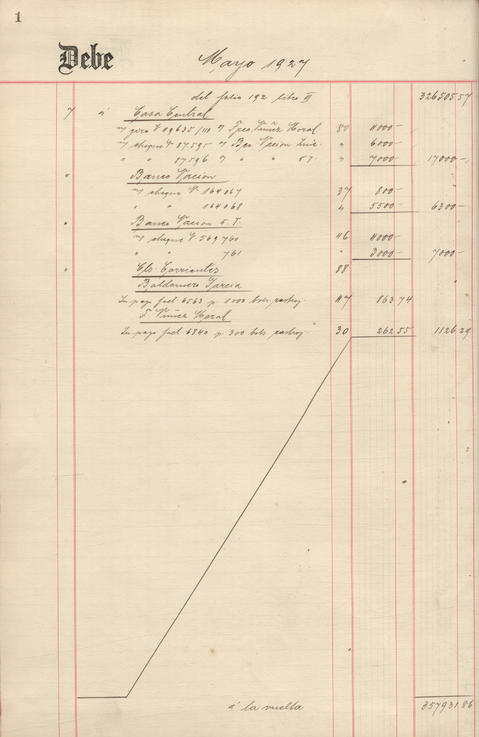 1
Debe Mayo 1927
del folio 192 libro II 32650557
7 " Casa Central
m/ giro Nº 19635/111 Núñez Moral 80 4000-
m/ cheque Nº 87595 " 6000-
" " 87596 " " " S.T. " 7000- 17000-
" Banco Nación
m/ cheque Nº 164067 37 800-
" " 164068 " 5500- 6300-
" Banco Nación S.T.
m/ cheque Nº 569760 46 4000-
" " 761 " 3000- 7000-
" Cts. Corrientes 88
Baldomero García
Su pago fact 6563 p 1000 bols rastroj 117 863 74
F Núñez Moral
Su pago fact 6840 p 300 bols rastroj 30 262 55 1126 29
á la vuelta 35793186